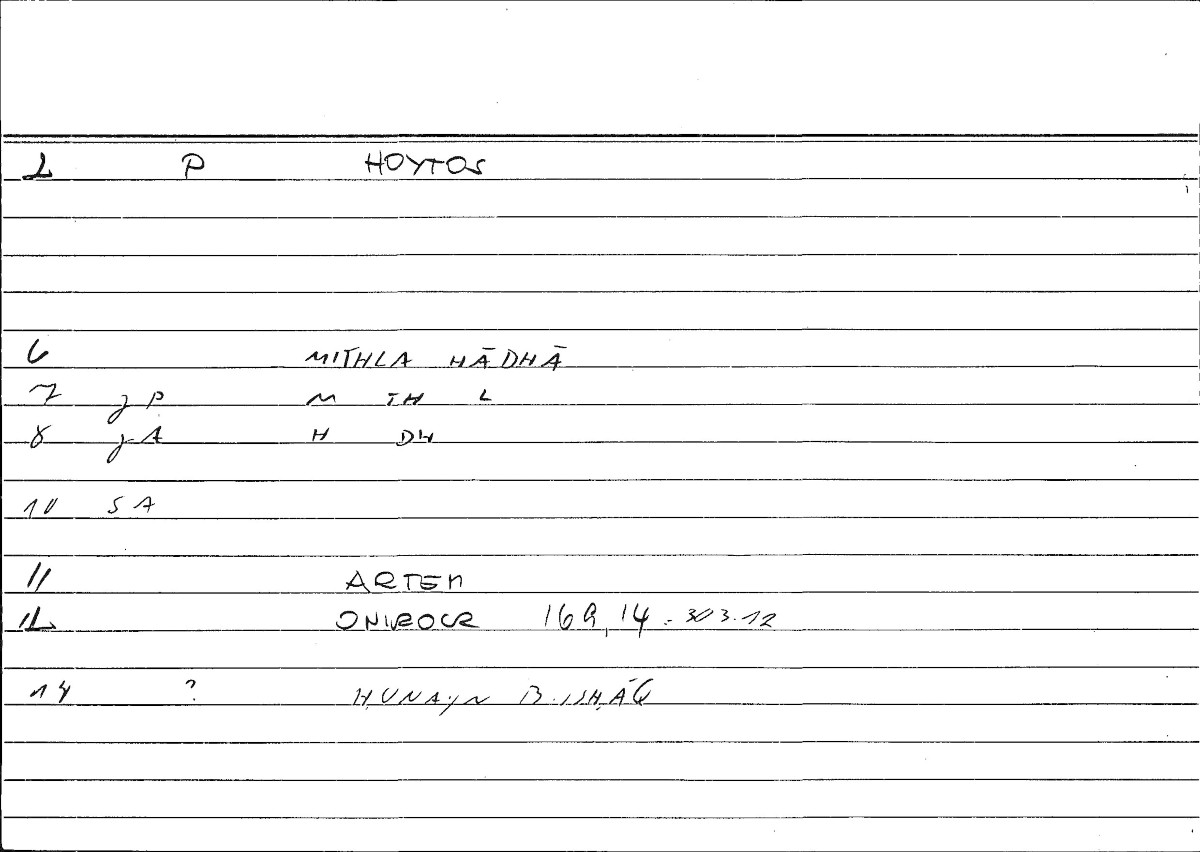 2 P HOYTOS
6 MITHLA HĀDHĀ
7 jP M TH L
8 jA H DH
10 SA
11 ARTEM
12 ONIROCR 169,14 - 303.12
14 ? ḤUNAYN B.ISḤĀQ